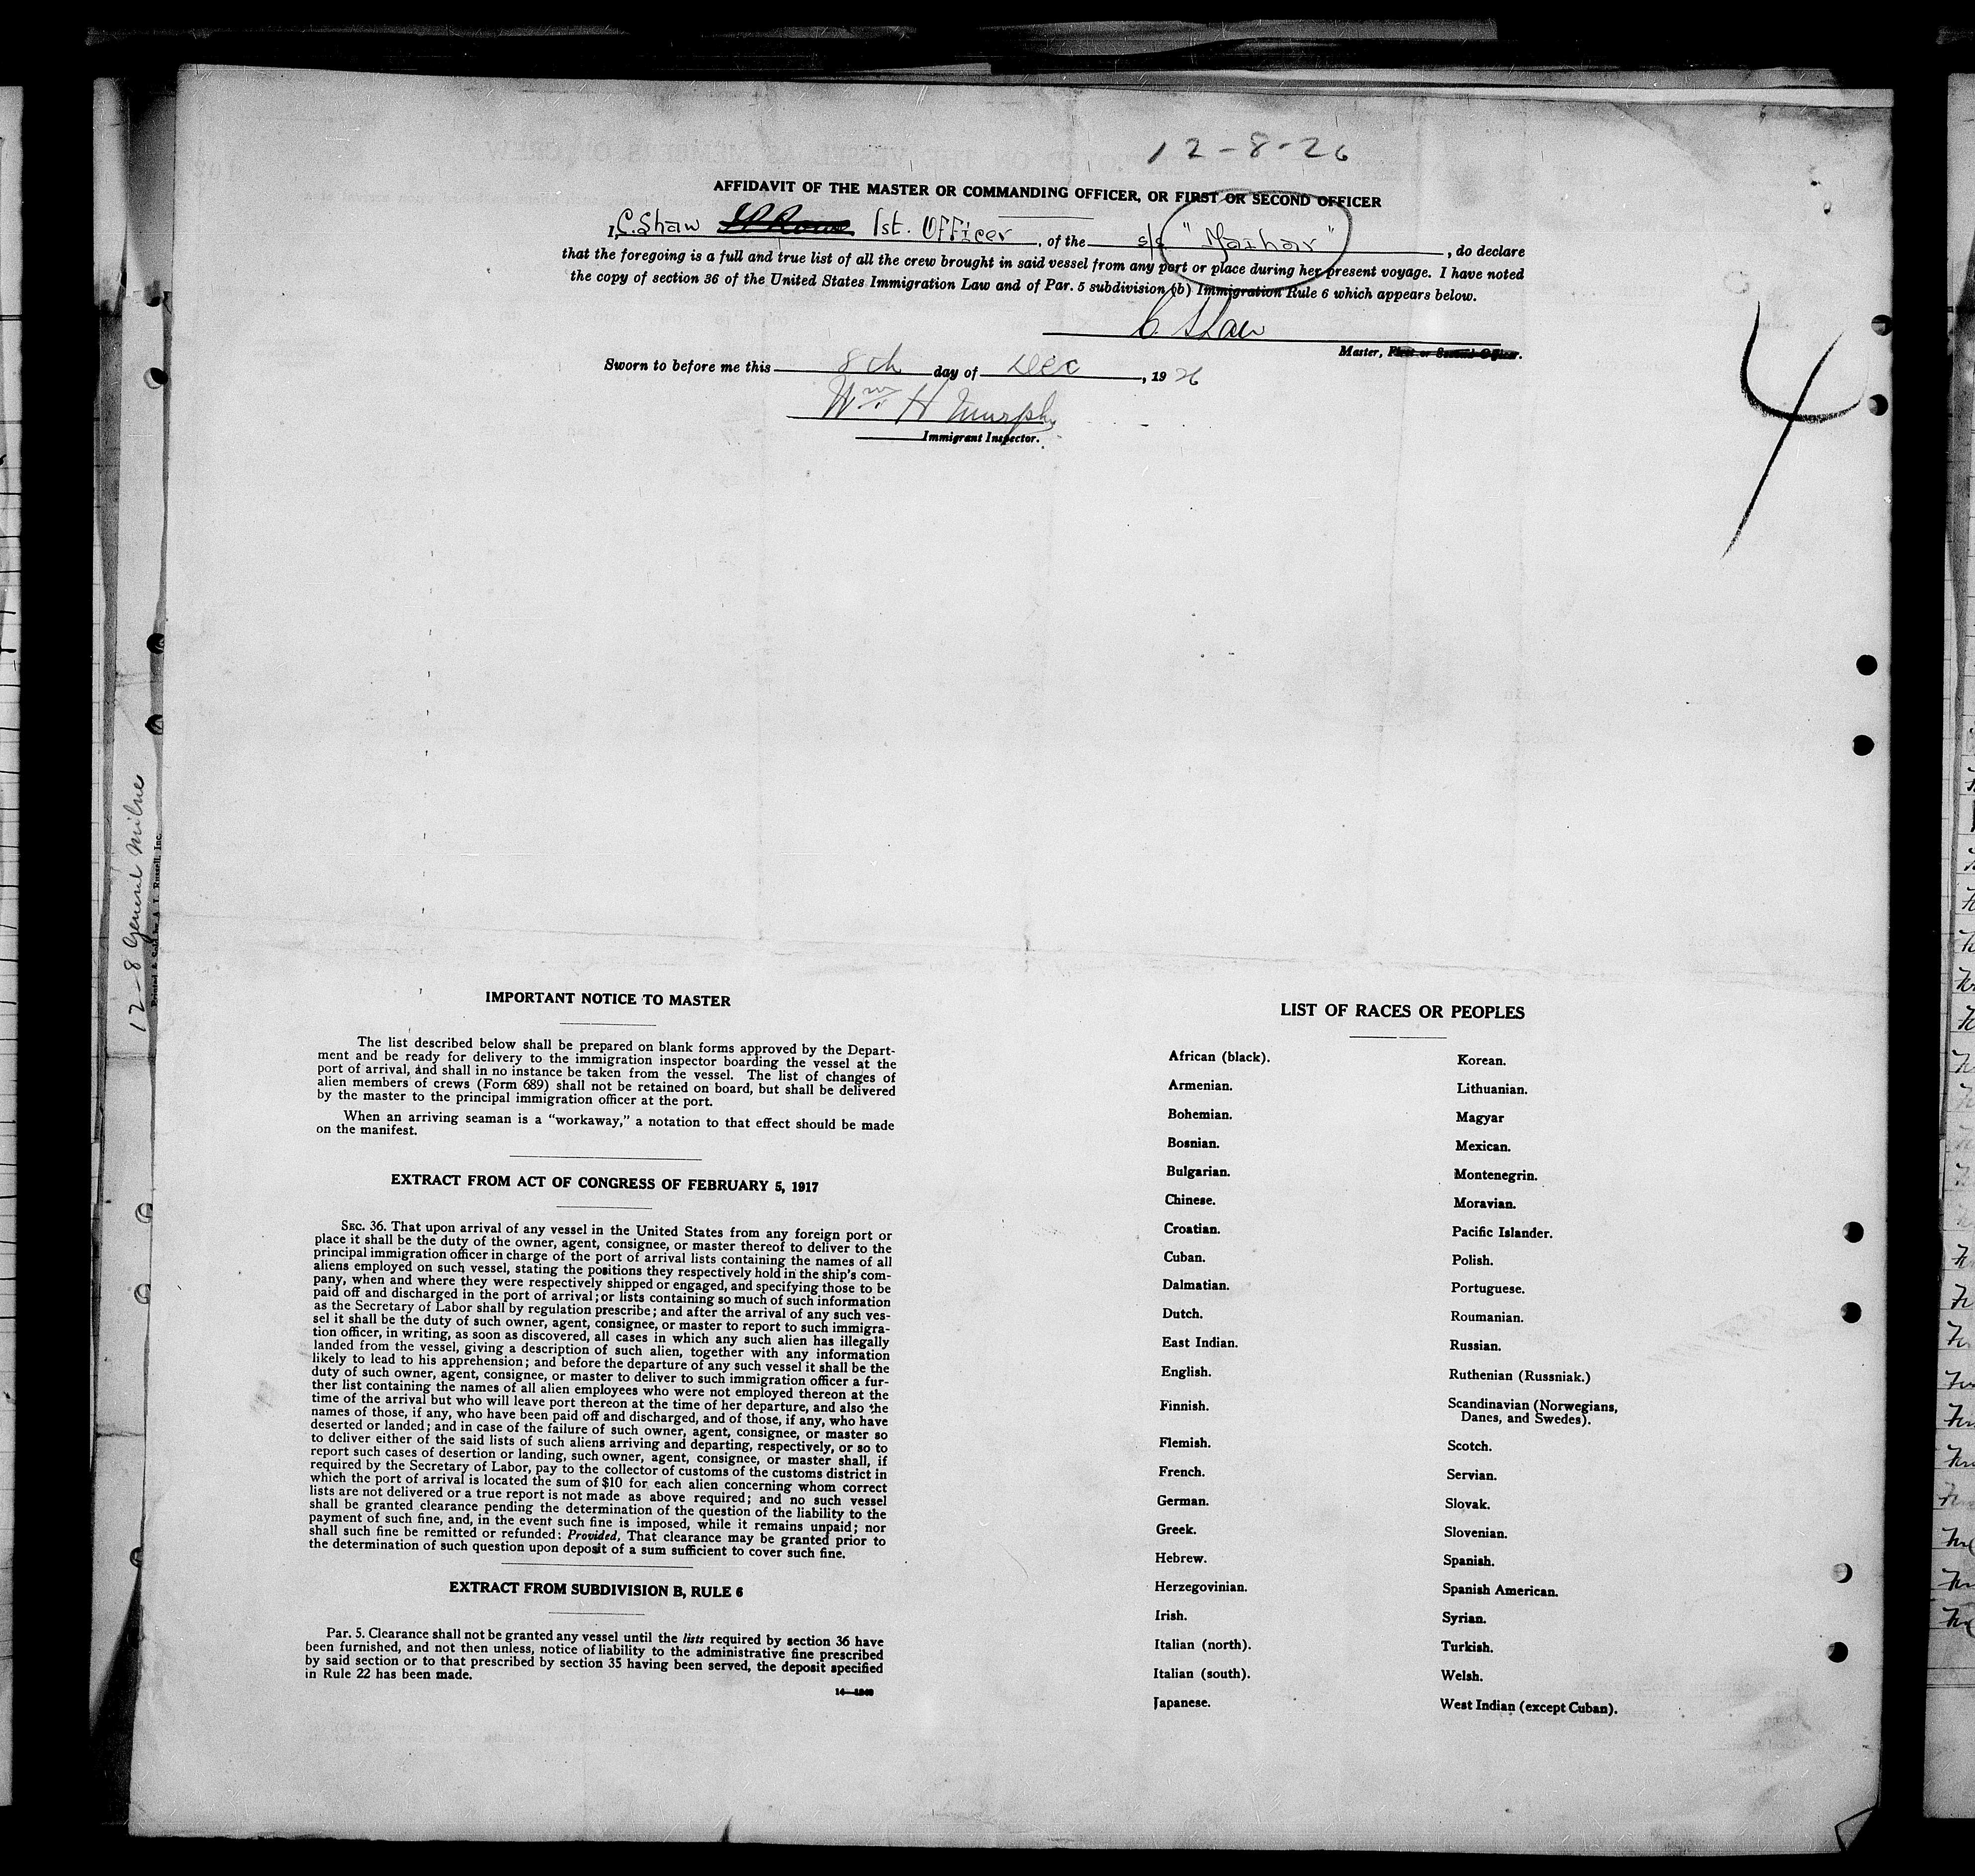 12-8-26
AFFIDAVIT OF THE MASTER OR COMMANDING OFFICER, OR FIRST OR SECOND OFFICER
I, C. Shaw 1st. Officer, of the s/s "Maihar", do declare
that the foregoing is a full and true list of all the crew brought in said vessel from any port or place during her present voyage. I have noted
the copy of section 36 of the United States Immigration Law and of Par. 5 subdivision (b) Immigration Rule 6 which appears below.
C. Shaw
Master, First or Second Officer.
Sworn to before me this 8th day of Dec, 1926
Wm H Murphy
Immigrant Inspector.
4
12-8 General Milne
Printed & Sold by A. L. Russell, Inc.
IMPORTANT NOTICE TO MASTER
The list described below shall be prepared on blank forms approved by the Depart-
ment and be ready for delivery to the immigration inspector boarding the vessel at the
port of arrival, and shall in no instance be taken from the vessel. The list of changes of
alien members of crews (Form 689) shall not be retained on board, but shall be delivered
by the master to the principal immigration officer at the port.
When an arriving seaman is a "workaway," a notation to that effect should be made
on the manifest.
EXTRACT FROM ACT OF CONGRESS OF FEBRUARY 5, 1917
SEC. 36. That upon arrival of any vessel in the United States from any foreign port or
place it shall be the duty of the owner, agent, consignee, or master thereof to deliver to the
principal immigration officer in charge of the port of arrival lists containing the names of all
aliens employed on such vessel, stating the positions they respectively hold in the ship's com-
pany, when and where they were respectively shipped or engaged, and specifying those to be
paid off and discharged in the port of arrival; or lists containing so much of such information
as the Secretary of Labor shall by regulation prescribe; and after the arrival of any such ves-
sel it shall be the duty of such owner, agent, consignee, or master to report to such immigra-
tion officer, in writing, as soon as discovered, all cases in which any such alien has illegally
landed from the vessel, giving a description of such alien, together with any information
likely to lead to his apprehension; and before the departure of any such vessel it shall be the
duty of such owner, agent, consignee, or master to deliver to such immigration officer a fur-
ther list containing the names of all alien employees who were not employed thereon at the
time of the arrival but who will leave port thereon at the time of her departure, and also the
names of those, if any, who have been paid off and discharged, and of those, if any, who have
deserted or landed; and in case of the failure of such owner, agent, consignee, or master so
to deliver either of the said lists of such aliens arriving and departing, respectively, or so to
report such cases of desertion or landing, such owner, agent, consignee, or master shall, if
required by the Secretary of Labor, pay to the collector of customs of the customs district in
which the port of arrival is located the sum of $10 for each alien concerning whom correct
lists are not delivered or a true report is not made as above required; and no such vessel
shall be granted clearance pending the determination of the question of the liability to the
payment of such fine, and, in the event such fine is imposed, while it remains unpaid; nor
shall such fine be remitted or refunded: Provided, That clearance may be granted prior to
the determination of such question upon deposit of a sum sufficient to cover such fine.
EXTRACT FROM SUBDIVISION B, RULE 6
Par. 5. Clearance shall not be granted any vessel until the lists required by section 36 have
been furnished, and not then unless, notice of liability to the administrative fine prescribed
by said section or to that prescribed by section 35 having been served, the deposit specified
in Rule 22 has been made.
LIST OF RACES OR PEOPLES
African (black).
Armenian.
Bohemian.
Bosnian.
Bulgarian.
Chinese.
Croatian.
Cuban.
Dalmatian.
Dutch.
East Indian.
English.
Finnish.
Flemish.
French.
German.
Greek.
Hebrew.
Herzegovinian.
Irish.
Italian (north).
Italian (south).
Japanese.
Korean.
Lithuanian.
Magyar
Mexican.
Montenegrin.
Moravian.
Pacific Islander.
Polish.
Portuguese.
Roumanian.
Russian.
Ruthenian (Russniak.)
Scandinavian (Norwegians,
Danes, and Swedes).
Scotch.
Servian.
Slovak.
Slovenian.
Spanish.
Spanish American.
Syrian.
Turkish.
Welsh.
West Indian (except Cuban).